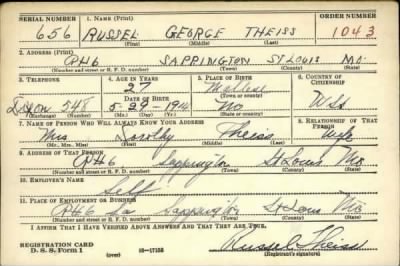 SERIAL NUMBER 1. NAME (Print) ORDER NUMBER
656 RUSSEL GEORGE THEISS 1043
(First) (Middle) (Last)
2. ADDRESS (Print)
RH6 SAPPINGTON ST LOUIS MO.
(Number and street or R. F. D. number) (Town) (County) (State)
3. TELEPHONE 4. AGE IN YEARS 5. PLACE OF BIRTH 6. COUNTRY OF CITIZENSHIP
27
DATE OF BIRTH (Town or county)
548 5-29-1914 Mo
(Exchange) (Number) (Mo.) (Day) (Yr.) (State or country)
7. NAME OF PERSON WHO WILL ALWAYS KNOW YOUR ADDRESS 8. RELATIONSHIP OF THAT PERSON
Mrs Theiss Wife
(Mr., Mrs., Miss) (First) (Middle) (Last)
9. ADDRESS OF THAT PERSON
RH6 Sappington St Louis Mo
(Number and street or R. F. D. number) (Town) (County) (State)
10. EMPLOYER'S NAME
Self
11. PLACE OF EMPLOYMENT OR BUSINESS
RH6 Sappington St Louis Mo
(Number and street or R. F. D. number) (Town) (County) (State)
I AFFIRM THAT I HAVE VERIFIED ABOVE ANSWERS AND THAT THEY ARE TRUE.
REGISTRATION CARD
D. S. S. Form 1 (over) 16—17105 Russel Theiss
(Registrant's signature)